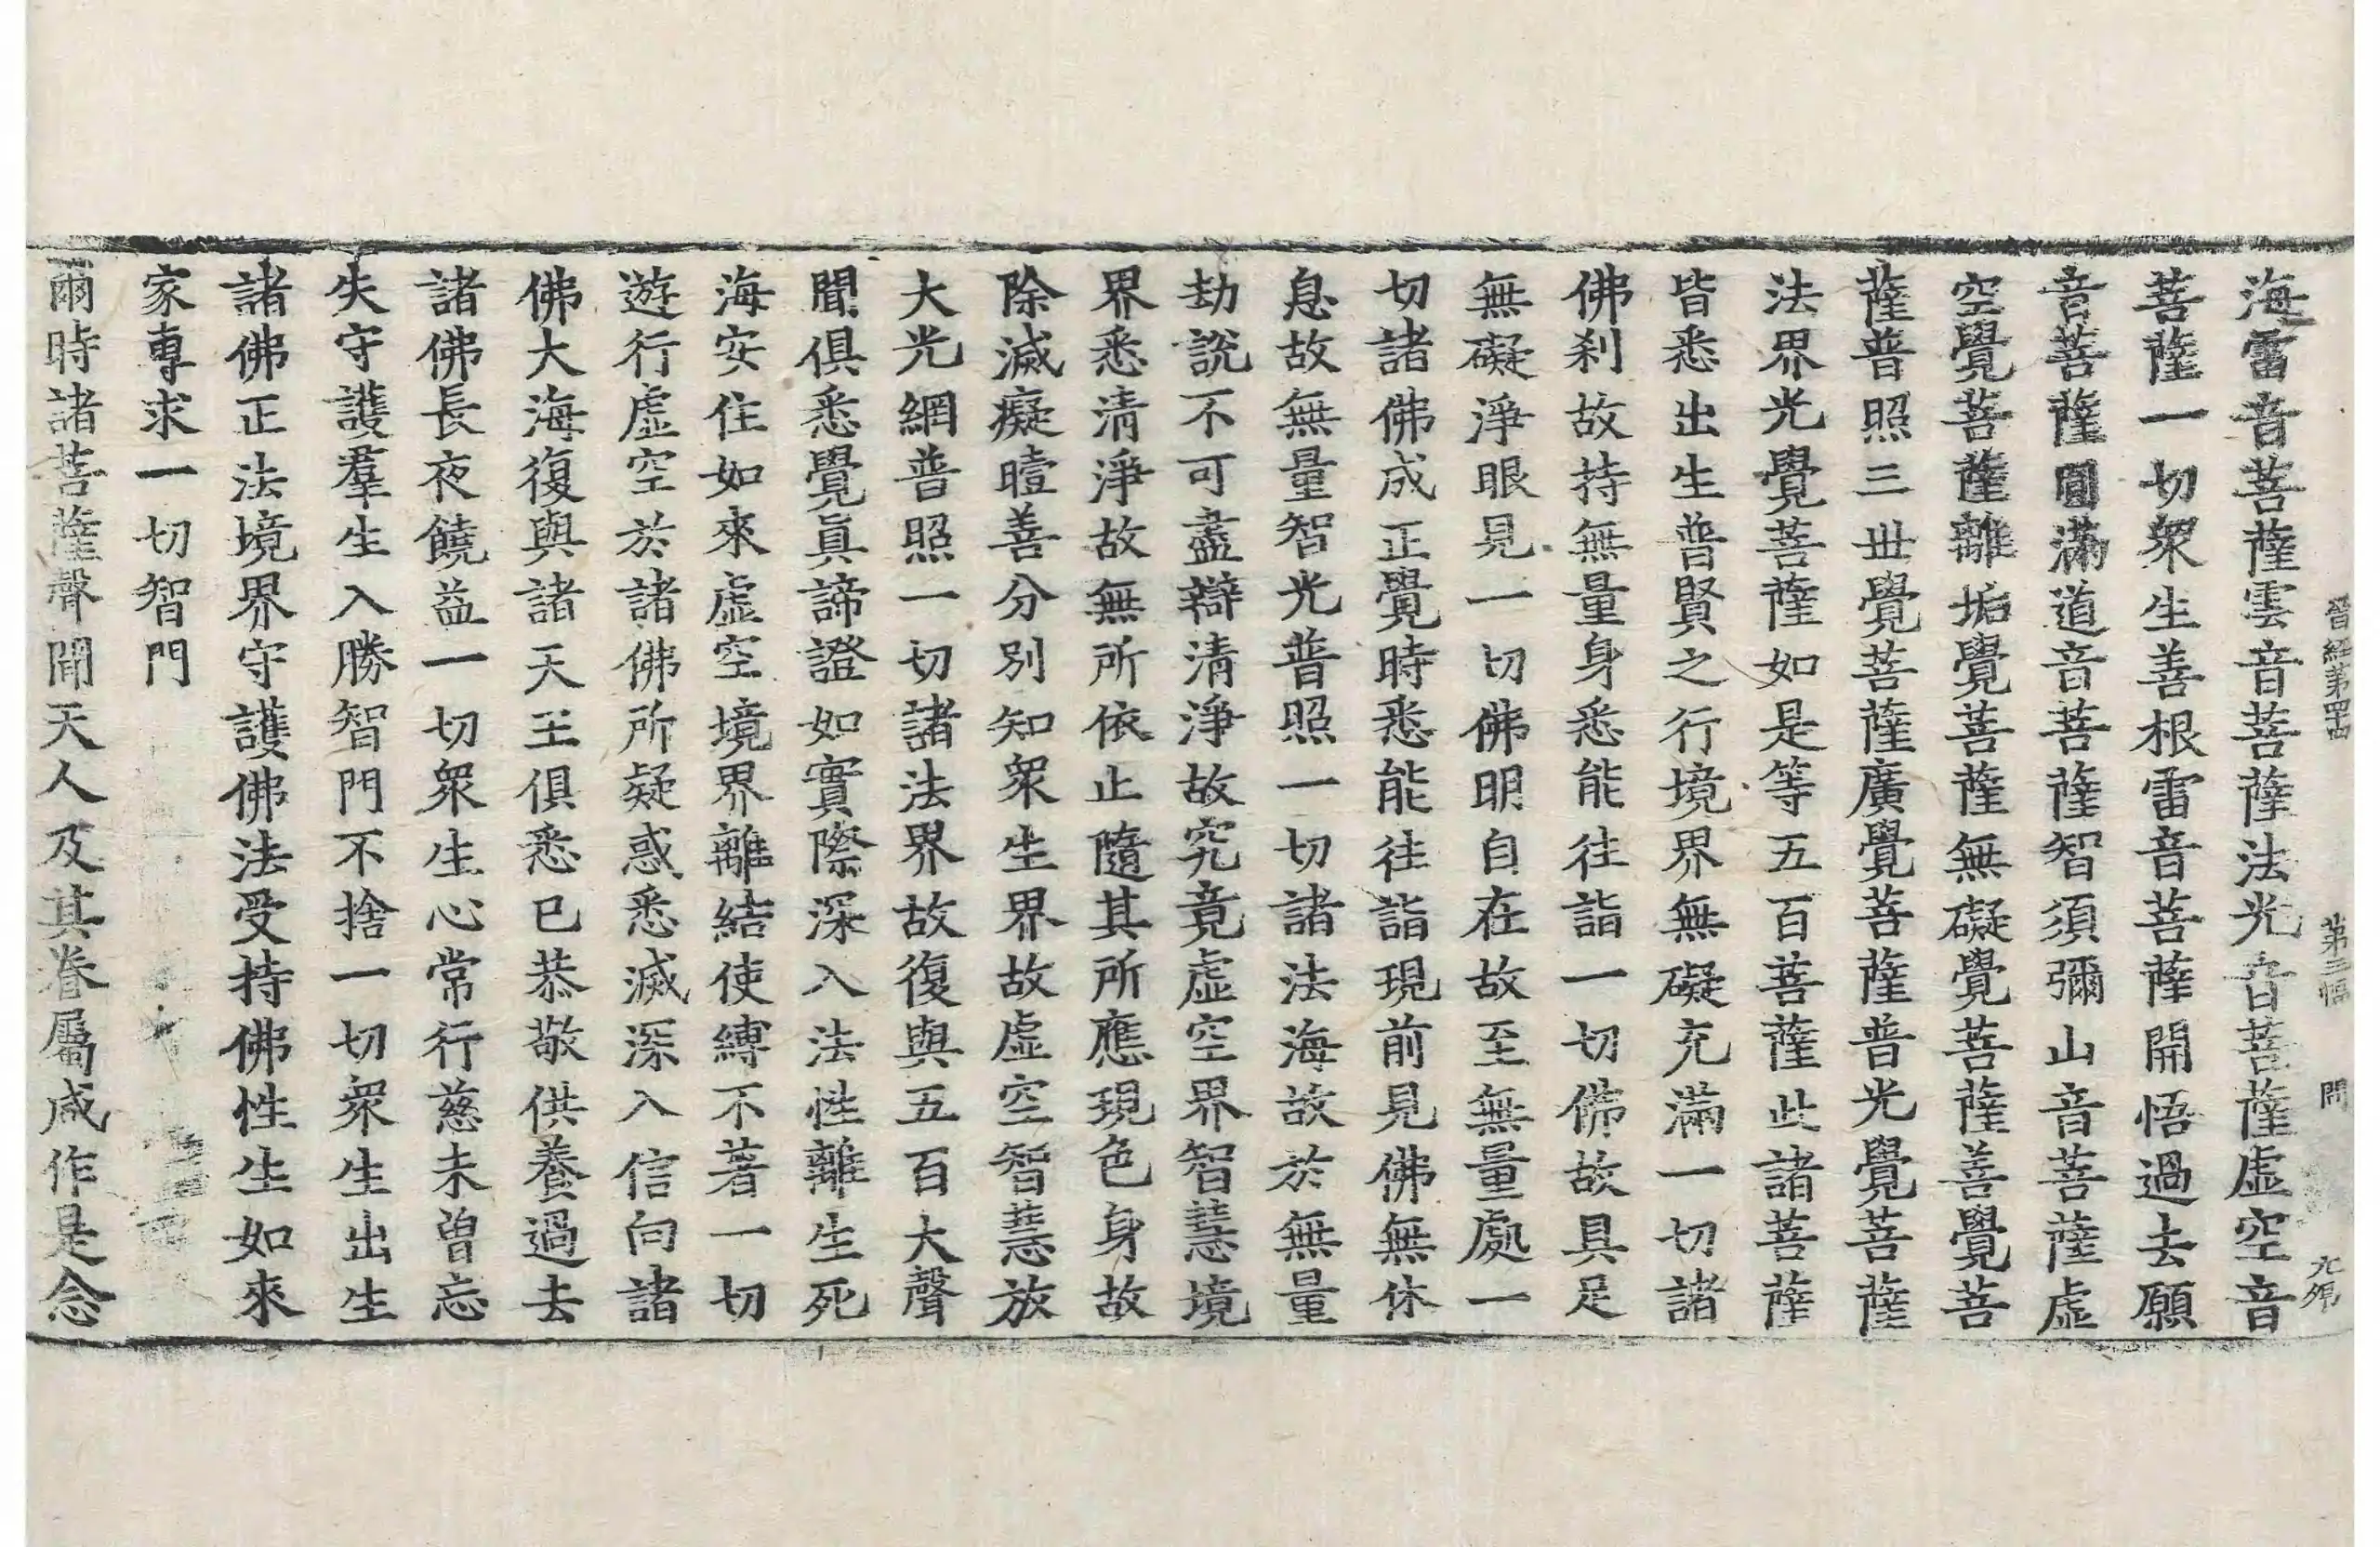 晉經第四十四 第三幅 問 九𠨘
海雷音菩薩雲音菩薩法光音菩薩虛空音
菩薩一切衆生善根雷音菩薩開悟過去願
音菩薩圓滿道音菩薩智須彌山音菩薩虛
空覺菩薩離垢覺菩薩無礙覺菩薩善覺菩
薩普照三世覺菩薩廣覺菩薩普光覺菩薩
法界光覺菩薩如是等五百菩薩此諸菩薩
皆悉出生普賢之行境界無礙充滿一切諸
佛刹故持無量身悉能往詣一切佛故具足
無礙淨眼見一切佛明自在故至無量處一
切諸佛成正覺時悉能往詣現前見佛無休
息故無量智光普照一切諸法海故於無量
劫說不可盡辯清淨故究竟虛空界智慧境
界悉清淨故無所依止隨其所應現色身故
除滅癡曀善分別知衆生界故虛空智慧放
大光網普照一切諸法界故復與五百大聲
聞俱悉覺眞諦證如實際深入法性離生死
海安住如來虛空境界離結使縛不著一切
遊行虛空於諸佛所疑惑悉滅深入信向諸
佛大海復與諸天王俱悉已恭敬供養過去
諸佛長夜饒益一切衆生心常行慈未曾忘
失守護羣生入勝智門不捨一切衆生出生
諸佛正法境界守護佛法受持佛性生如來
家專求一切智門
爾時諸菩薩聲聞天人及其眷屬咸作是念